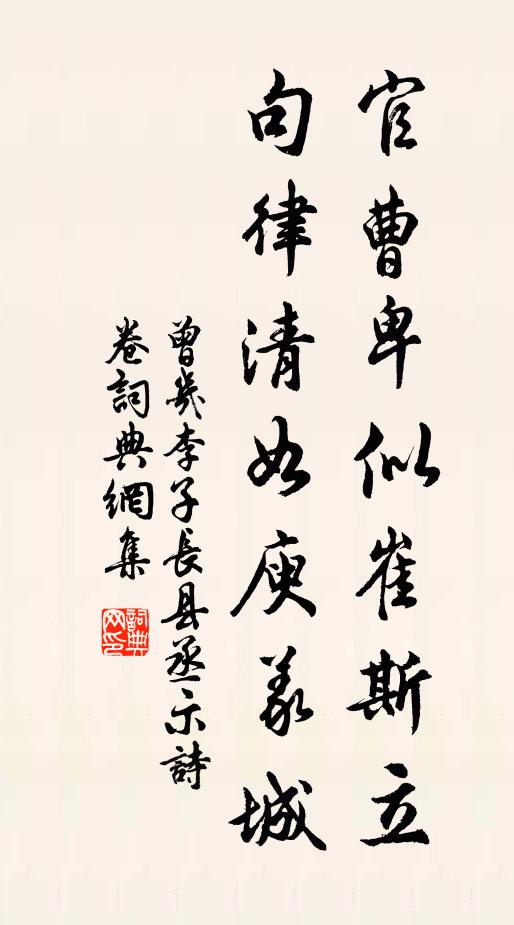 官曹卑似崔斯立
句律清如庾義城
曾幾李子長县丞示詩
卷詞典網集
詞典
网印